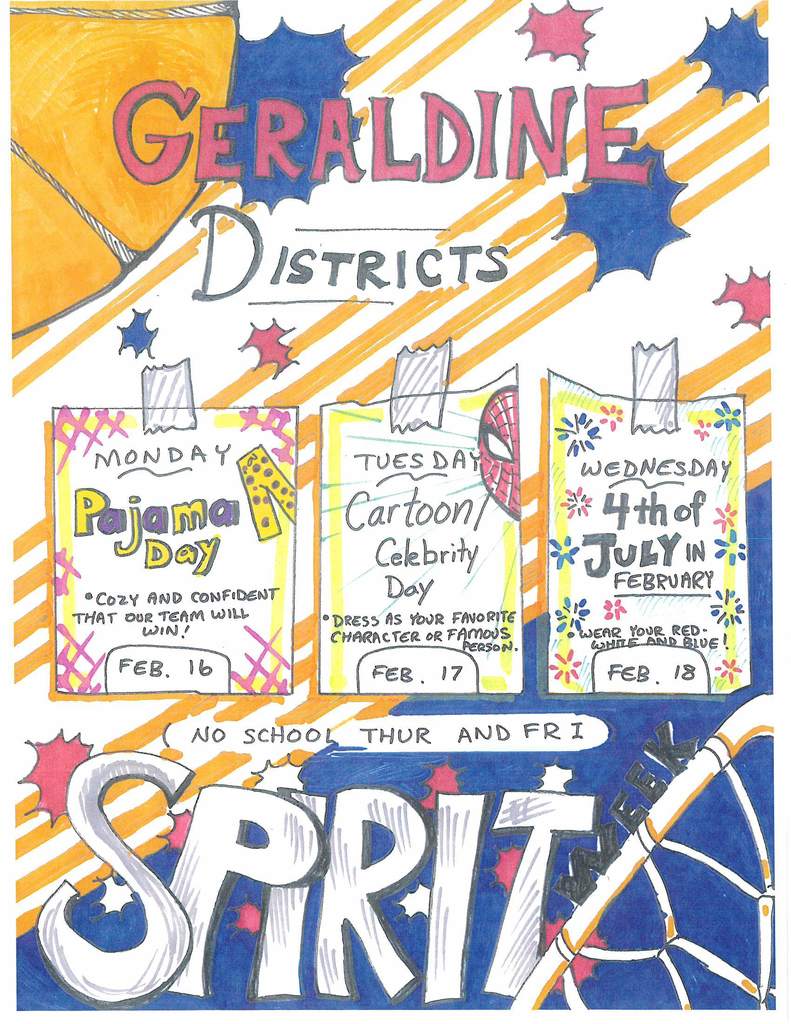 GERALDINE
DISTRICTS
MONDAY
Pajama
Day
•COZY AND CONFIDENT
THAT OUR TEAM WILL
WIN!
FEB. 16
TUESDAY
Cartoon/
Celebrity
Day
•DRESS AS YOUR FAVORITE
CHARACTER OR FAMOUS
PERSON.
FEB. 17
WEDNESDAY
4th of
JULY IN
FEBRUARY
•WEAR YOUR RED-
WHITE AND BLUE!
FEB. 18
NO SCHOOL THUR AND FRI
SPIRIT
WEEK